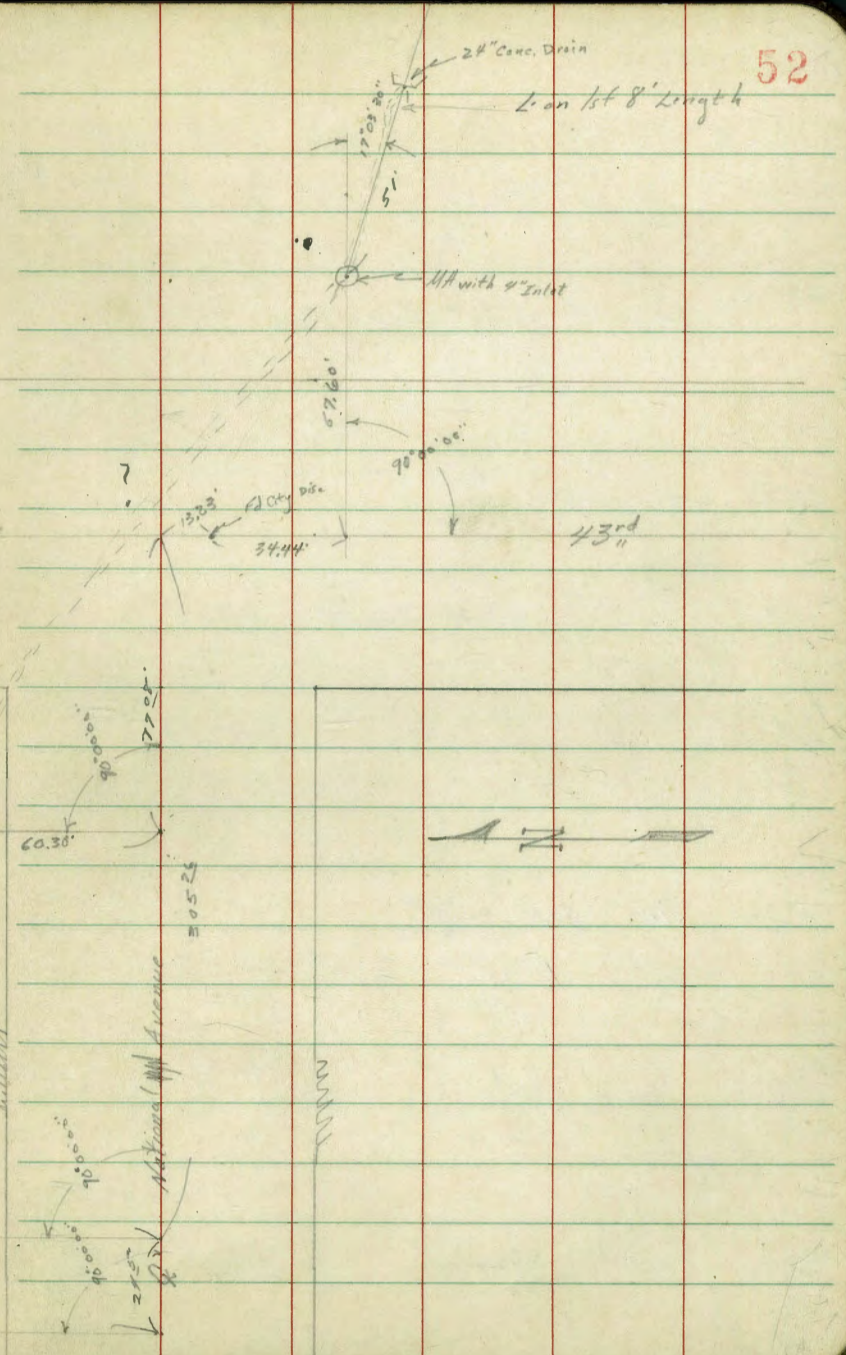 52
24" Conc. Drain
L. on 1st 8' Length
17° 03' 20"
51'
MH with 4" Inlet
67.60'
90° 00' 00"
?
13.83'
Fd City Disc
34.44'
43rd
77.05'
90° 00' 00"
60.30'
N
305.26
National Avenue
90° 00' 00"
90° 00' 00"